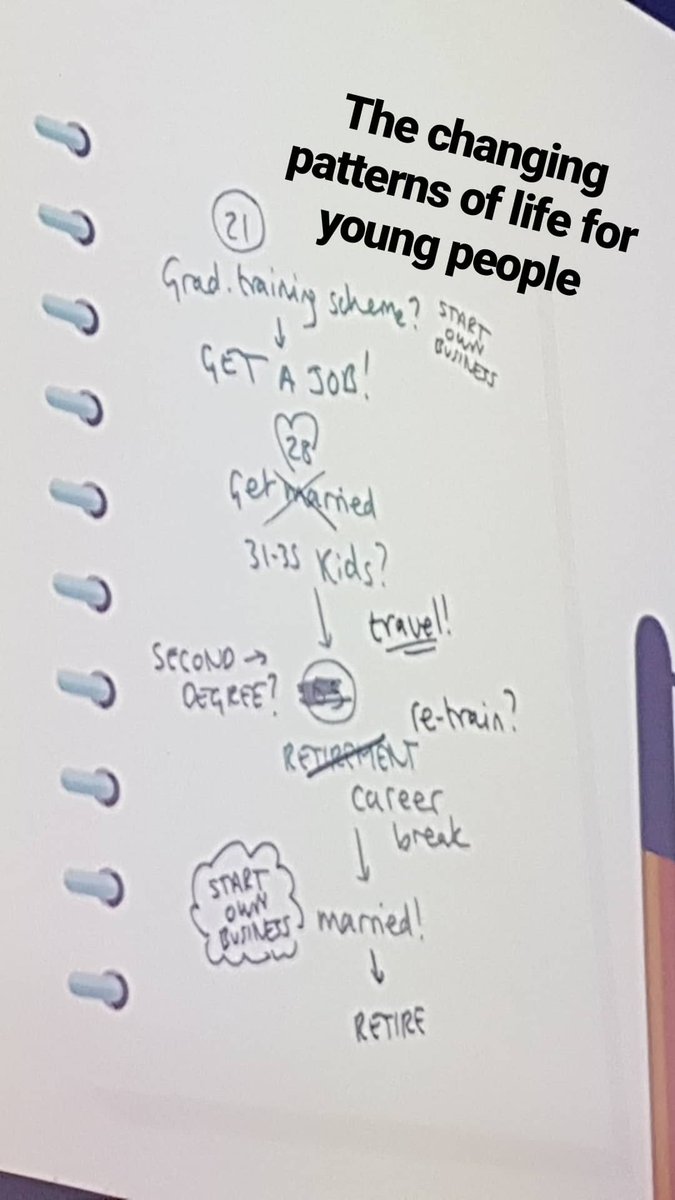 The changing
patterns of life for
young people
21
Grad. training scheme?
START
OWN
BUSINESS
GET A JOB!
28
Get married
31-35 Kids?
travel!
SECOND →
DEGREE?
re-train?
RETIREMENT
career
break
START
OWN
BUSINESS
married!
RETIRE